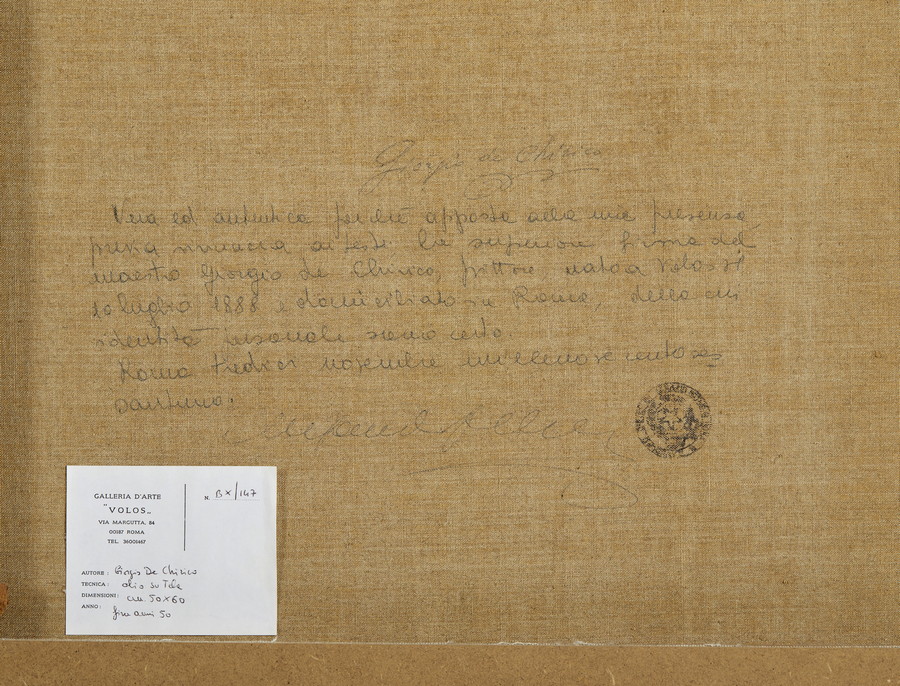 Giorgio de Chirico
Vera ed autentica perché apposta alla mia presenza
previa rinuncia ai testi la superiore firma del
maestro Giorgio de Chirico, pittore, nato a Volos il
10 luglio 1888 e domiciliato in Roma, della cui
identità personale sono certo.
Roma tredici novembre millenovecentoses
santuno.
GALLERIA D'ARTE
"VOLOS„
VIA MARGUTTA, 84
00187 ROMA
TEL. 36001467
N. BX/147
AUTORE: Giorgio De Chirico
TECNICA: olio su Tela
DIMENSIONI: cm 50x60
ANNO: fine anni 50